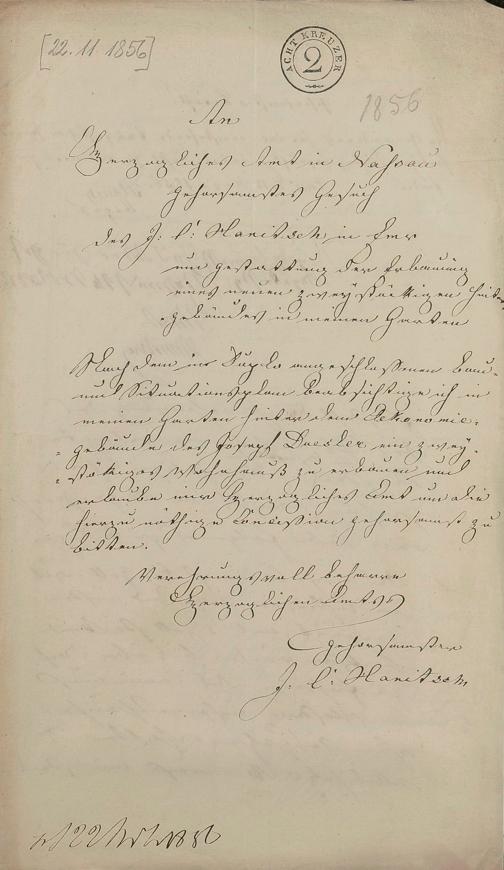 [22.11 1856]
ACHT KREUZER
2
1856
An
Herzogliches Amt in Nassau
gehorsamstes Gesuch
des J. C. Hanitsch in Ems
um Gestattung der Erbauung
eines neuen zweystöckigen Hinter
gebäudes in meinen Garten
Nach dem in Duplo angeschlossenen Bau-
und Situationsplan beabsichtige ich in
meinen Garten hinter dem Oekonomie-
gebäude des Joseph ein zwey-
stökiges Wohnhauß zu erbauen und
erlaube mir Herzogliches Amt um die
hierzu nöthige Concission gehorsamst zu
bitten.
Verehrungsvoll beharre
Herzoglichen Amtes
gehorsamster
J. C. Hanitsch
22 1856